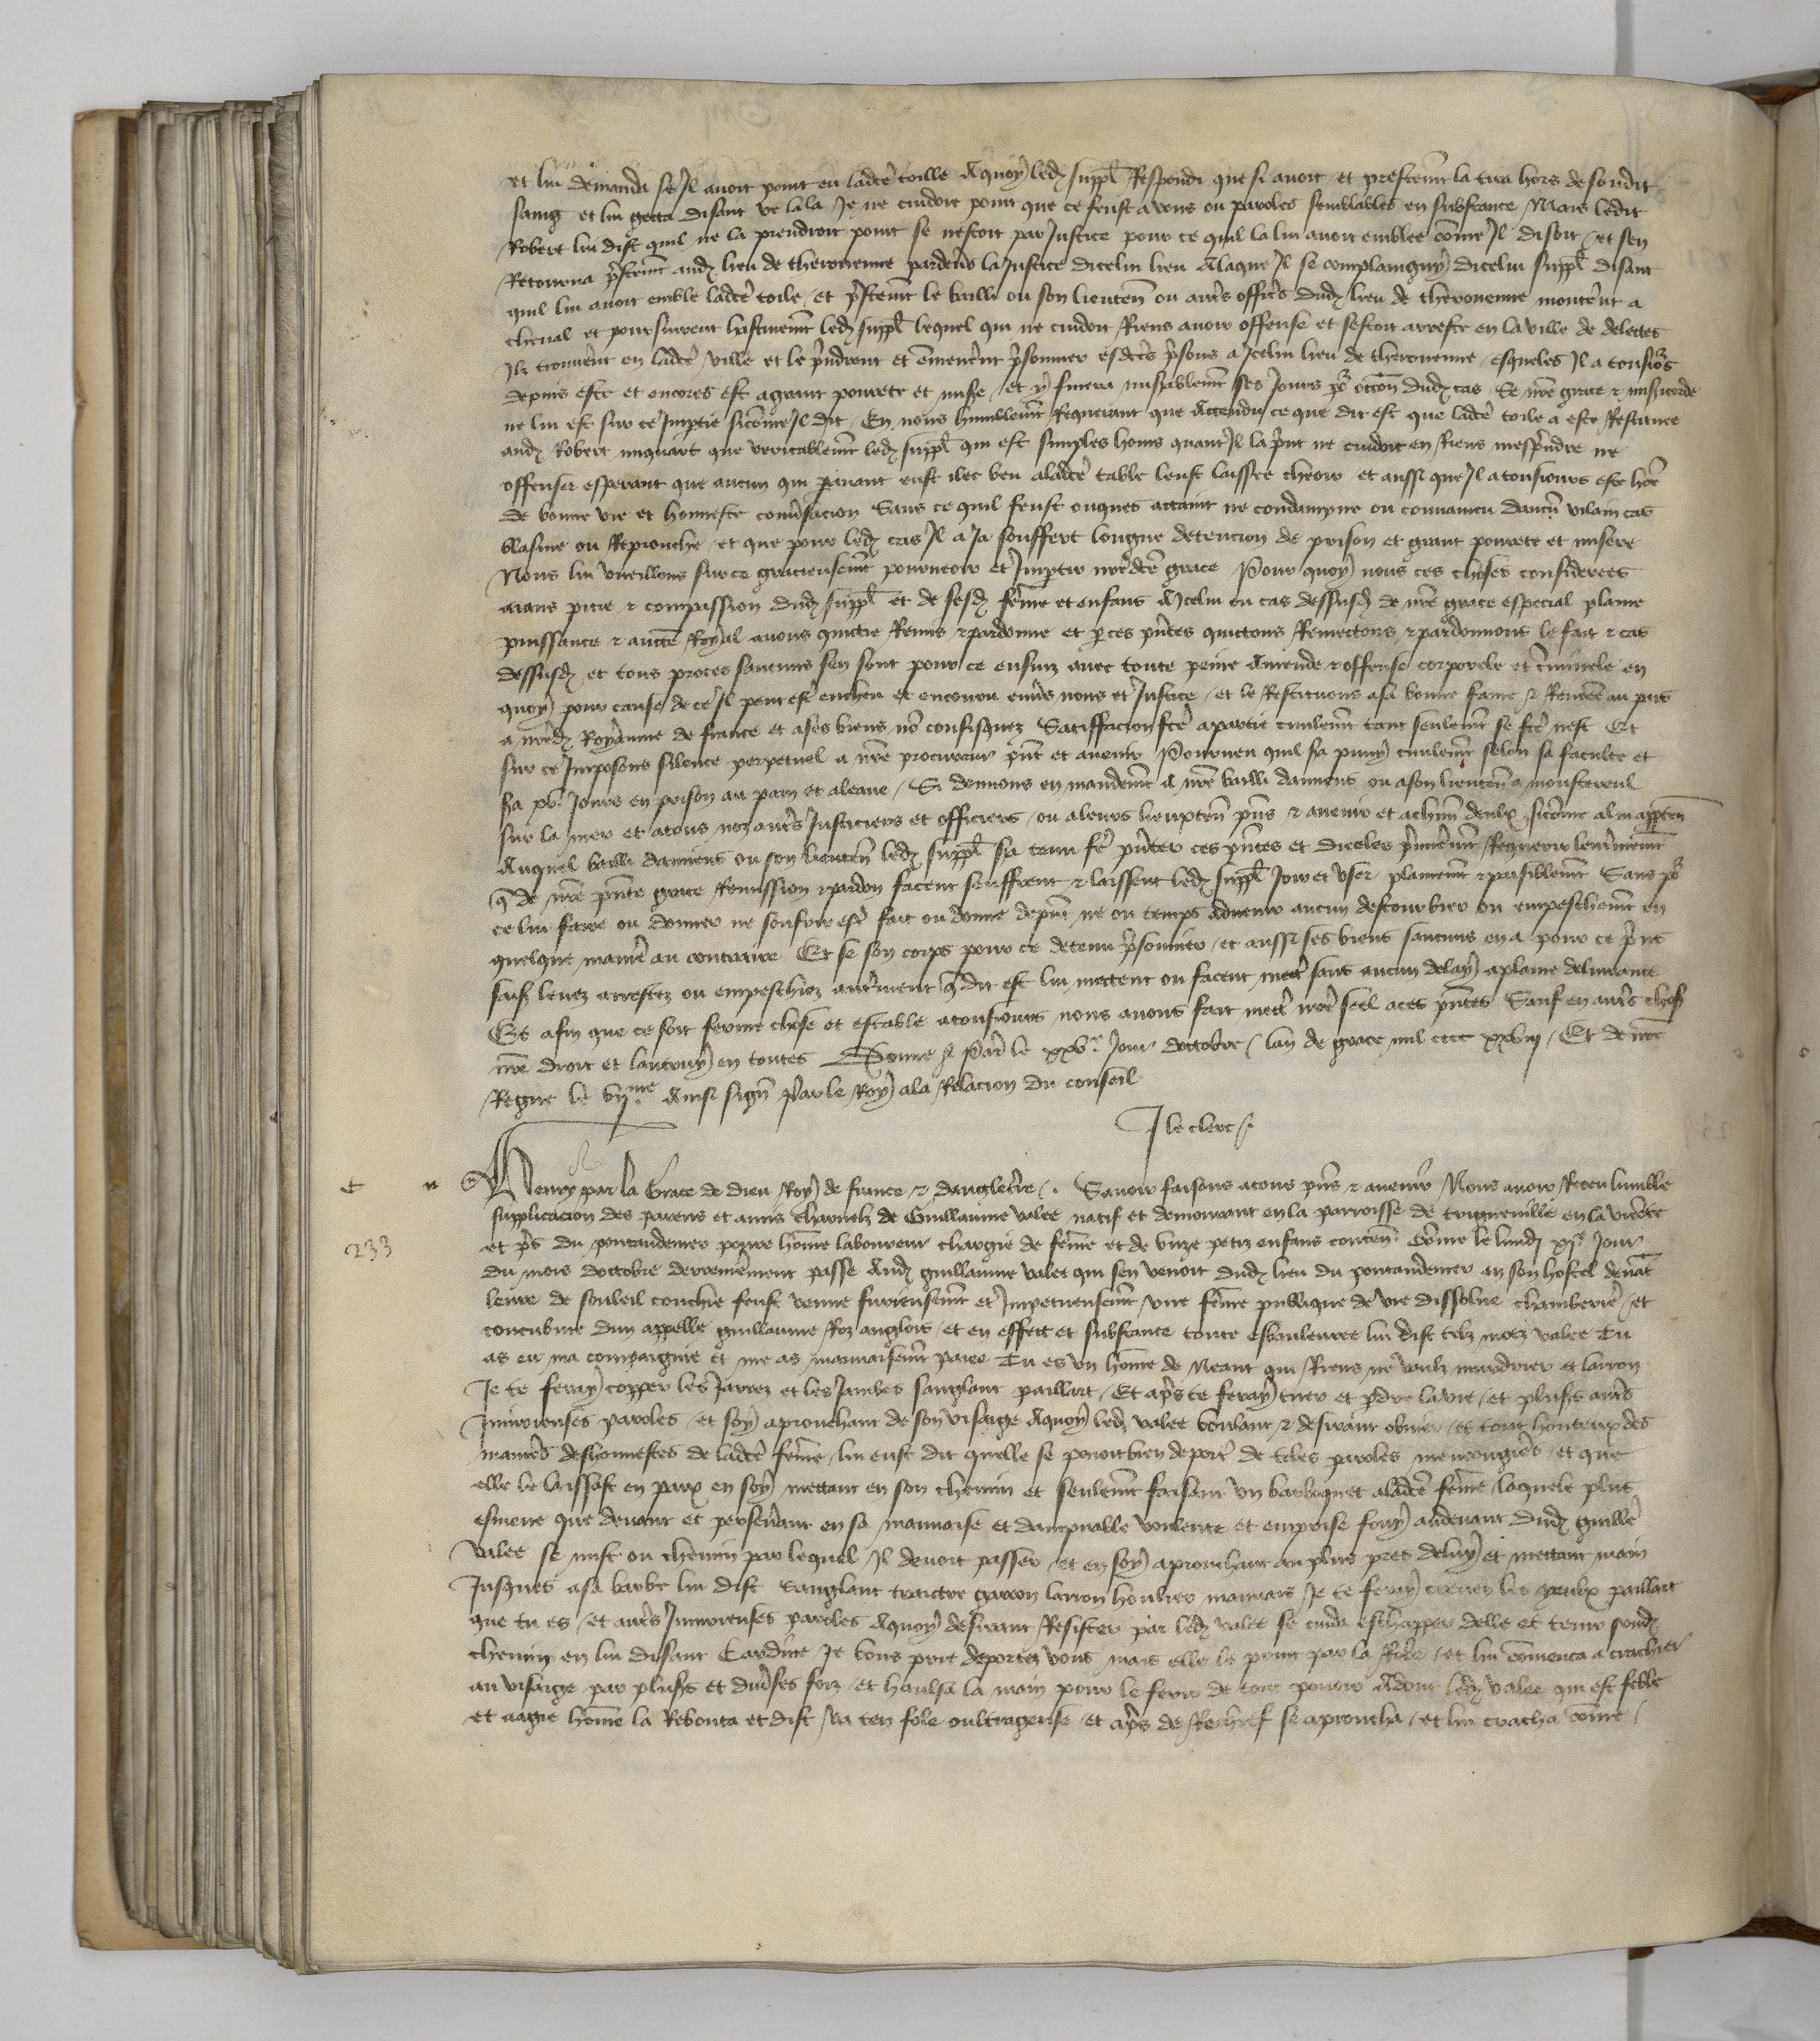 et lui demanda se Il avoit point eu ladcte toille Aquoy led suppl Respondi que si avoit et presentemt la tira hors de sondit
saing et lui getta disant ve la la Je ne cuidoie point que ce feust a vous ou paroles semblables en substance Mais ledit
Robert lui dist quil ne la prendroit point se nestoit par Justice pour ce quil la lui avoit emblee come Il disoit / et sen
Retourna pstemt aud lieu de therouenne pardevs la Justice dicelui lieu Alaquele Il se complaingny dicelui suppl disant
quil lui avoit emble ladcte toile / et pstemt le bailli ou son lieuten ou autrs officrs dud lieu de therouenne monterent a
cheval et poursuirent hastivemt led suppl lequel qui ne cuidoit Riens avoir offense et sestoit arreste en la ville de delettes
Ilz trouvernt en ladcte ville et le prindrent et emenernt prsonnier esdctes prisons a Icelui lieu de therouenne / esqueles Il a tousios
depuis este et encores est a grant povrete et misere / et y finera misablemt ses Jours po occon dud cas Se nre grace & misicorde
ne lui est sur ce Imptie sicome Il dit / En nous humblemt Requerant que Attendu ce que dit est que ladcte toile a este Restituee
aud Robert miquart que veritablemt led suppl qui est simples homs quant Il la print ne cuidoit en Riens mesprendre ne
offenser esperant que aucun qui paravant eust ilec beu aladcte table leust laissee cheoir et aussi que Il a tousiours este home
de bonne vie et honneste convsacion Sans ce quil feust onques attaint ne condampne ou convaincu daucun vilain cas
blasme ou Reprouche / et que pour led cas Il a Ja souffert longue detencion de prison et grant povrete et misere
Nous lui vueillons sur ce gracieusemt pourveoir et Imptir nredcte grace Pour quoy nous ces choses considerees
aians pitie & compassion dud suppl et de sesd feme et enfans A Icelui ou cas dessusd de nre grace especial plaine
puissance & aucte Royal avons quictie Remis & pardonne et p ces pntes quictons Remectons & pardonnons le fait & cas
dessusd et tous proces saucuns sen sont pour ce ensuiz avec toute peine Amende & offense corporele et criminele en
quoy pour cause de ce Il peut estre encheu et encouru envrs nous et Justice / et le Restituons a sa bonne fame & Renomee au pais
a nred Royaume de france et a ses biens no confisquez Satisffacion fcte a partie civilemt tant seulemt se fcte nest Et
sur ce Imposons silence perpetuel a nre procureur pnt et avenir Pourveu quil sera puny civilemt selon sa faculte et
sera xve Jours en prison au pain et a leaue / Si donnons en mandemt A nre bailli damiens ou a son lieuten a monstereul
sur la mer et a tous noz autrs Justiciers et officiers / ou a leurs lieuxten pns & avenir et a chun deulx sicome a lui apptien
Auquel bailli damiens ou son lieuten led suppl sera tenu fe pnter ces pntes et diceles primermt Requerir lentermemt
q de nre pnte grace Remission & pardon facent seuffrent & laissent led suppl Joir et user plainemt & paisiblemt Sans po
ce lui faire ou donner ne souffrir este fait ou donne depnt ne ou temps advenir aucun destourbier ou empeschemt en
quelque manre au contraire Et se son corps pour ce detenu prsonnier / et aussi ses biens saucuns en a pour ce prins
saisiz levez arrestez ou empeschiez autrment q dit est lui mettent ou facent mettre sans aucun delay a plaine delivrance
Et afin que ce soit ferme chose et estable a tousiours nous avons fait mettre nre seel a ces pntes Sauf en autrs choses
nre droit et lautruy en toutes Donne a Paris le xxve Jour doctobre / lan de grace mil cccc xxviij / Et de nre
Regne le vijme Ainsi sign Par le Roy a la Relacion du conseil
J le clerc
Henry par la Grace de Dieu Roy de france & dangleterre / . Savoir faisons a tous pns & avenir Nous avoir Receu lumble
233
supplicacion des parens et amis charnelz de Guillaume valee natif et demourant en la parroisse de tougueville en la viconte
et prs du pontaudemer povre home laboureur chargie de feme et de unze petiz enfans conten Come le lundi xje Jour
du mois doctobre derrenierement passe Aud guillaume valee qui sen venoit dud lieu du pontaudemer en son hostel devat
leure de souleil couchie feust venue furieusemt et Impetueusemt une feme publique de vie dissolue chamberiere / et
concubine dun appelle guillaume Roz anglois / et en effect et substance toute eschaulevree lui dist telz motz valee Tu
as eu ma compaignie et me as mauvaisemt paiee Tu es un home de Neant qui Riens ne vaulx murdrier et larron
Je te feray copper les Jarrez et les Jambes sanglant paillart / Et aprs te feray tuer et pdre la vie / et pluss autrs
Iniurieuses paroles / et soy aprouchant de son visaige Aquoy led valee voulant & desirant obvier / et tout honteux des
manres deshonnestes de ladcte feme / lui eust dit quelle se povoit bien deporter de teles paroles mencongieres / et que
elle le laissast en paix en soy mettant en son chemin et seulemt faisant un barboquet a ladcte feme / laquele plus
esmeue que devant et persevrant en sa mauvaise et dampnable voulente et emprise fouy audevant dud guille
valee se mist ou chemin par lequel Il devoit passer / et en soy aprouchant au plus pres de luy et mettant main
Jusques a sa barbe lui dist Sanglant traictre garcon larron houlier mauvais / Je te feray crever les yeulx paillart
que tu es / et autrs Iniurieuses paroles Aquoy desirant Resister par led valee se cuida eschapper delle et tenir sond
chemin en lui disant Cardine Je vous prie deportez vous mais elle le print par la Robe / et lui comenca a crachier
au visaige par pluss et divses foiz / et haulsa la main pour le ferir de tout povoir Adont led valee qui est feble
et aagie home la Rebouta et dist / va ten fole oultrageuse / et aprs de Rechief se aproucha / et lui cracha come /